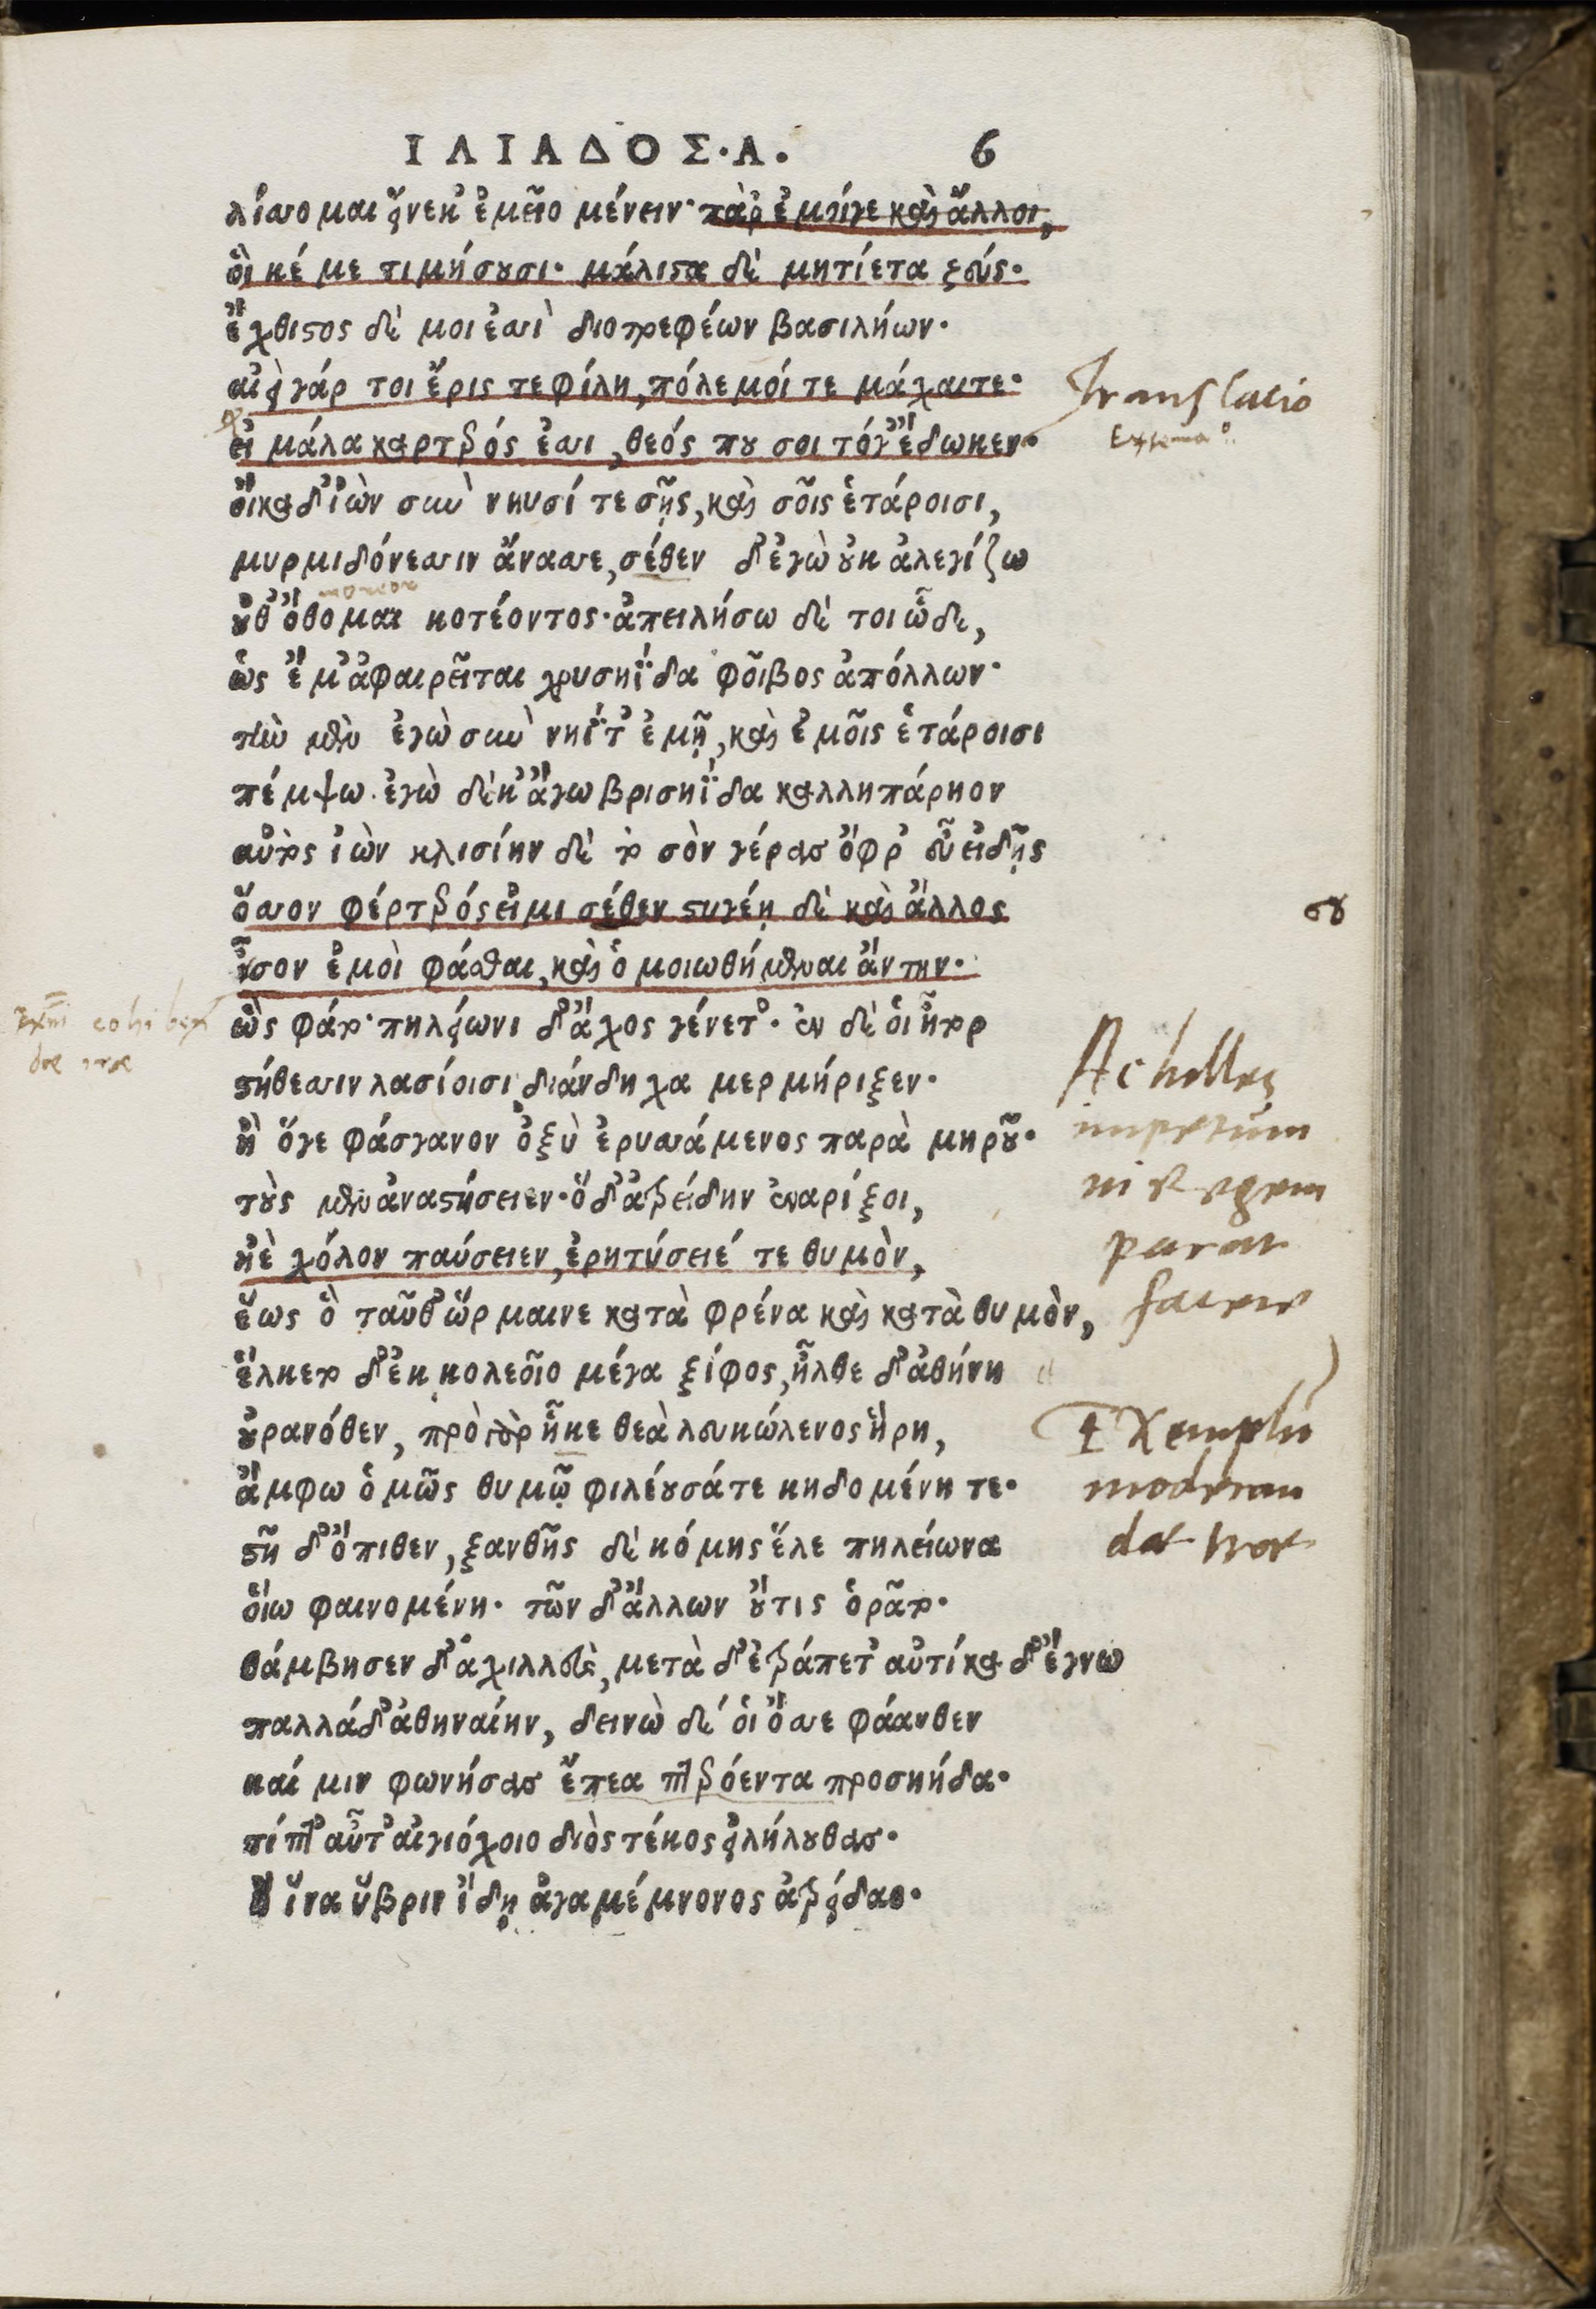 ΙΛΙΑΔΟΣ·Α. 6
λίσσομαι εἵνεκ' ἐμεῖο μένειν· πὰρ ἐμοίγε καὶ ἄλλοι,
οἵ κέ με τιμήσουσι· μάλιστα δέ μητίετα ζεύς·
ἔχθιστος δέ μοι ἐσσὶ διοτρεφέων βασιλήων·
αἰεὶ γάρ τοι ἔρις τε φίλη, πόλεμοί τε μάχαι τε·
Translatio
εἰ μάλα καρτερός ἐσσι, θεός που σοι τόγ' ἔδωκεν·
οἴκαδ' ἰὼν σὺν νηυσί τε σῇς, καὶ σοῖς ἑτάροισι,
μυρμιδόνεσσιν ἄνασσε, σέθεν δ' ἐγὼ οὐκ ἀλεγίζω
οὐθ' ὄθομαι κοτέοντος· ἀπειλήσω δέ τοι ὧδε,
ὡς ἔμ' ἀφαιρεῖται χρυσηΐδα φοῖβος ἀπόλλων·
τὴν μὲν ἐγὼ σὺν νηΐ τ' ἐμῇ, καὶ ἐμοῖς ἑτάροισι
πέμψω. ἐγὼ δέ κ' ἄγω βρισηΐδα καλλιπάρηον
αὐτὸς ἰὼν κλισίην δέ τὸ σὸν γέρας ὄφρ' εὖ εἰδῇς
ὅσσον φέρτερός εἰμι σέθεν στυγέῃ δέ καὶ ἄλλος
σου
ἶσον ἐμοὶ φάσθαι, καὶ ὁμοιωθήμεναι ἄντην·
ὣς φάτο· πηλείωνι δ' ἄχος γένετ'· ἐν δέ οἱ ἦτορ
στήθεσσιν λασίοισι διάνδηχα μερμήριξεν·
Achilles
ἢ ὅγε φάσγανον ὀξὺ ἐρυσσάμενος παρὰ μηροῦ·
impetum
τοὺς μὲν ἀναστήσειεν· ὅ δ' ἀτρείδην ἐναρίξοι,
in regem
ἠὲ χόλον παύσειεν, ἐρητύσειέ τε θυμὸν,
parat
ἕως ὃ ταῦθ' ὥρμαινε κατὰ φρένα καὶ κατὰ θυμὸν,
facere
ἕλκετο δ' ἐκ κολεοῖο μέγα ξίφος, ἦλθε δ' ἀθήνη
οὐρανόθεν, πρὸ γὰρ ἧκε θεὰ λευκώλενος ἥρη,
Exemplū
ἄμφω ὁμῶς θυμῷ φιλέουσά τε κηδομένη τε·
moderan
στῆ δ' ὄπιθεν, ξανθῆς δέ κόμης ἕλε πηλείωνα
dae irae
οἴω φαινομένη· τῶν δ' ἄλλων οὔτις ὁρᾶτο·
θάμβησεν δ' ἀχιλλεὺς, μετὰ δ' ἐτράπετ' αὐτίκα δ' ἔγνω
παλλάδ' ἀθηναίην, δεινὼ δέ οἱ ὄσσε φάανθεν
καί μιν φωνήσας ἔπεα πτερόεντα προσηύδα·
τίπτ' αὖτ' αἰγιόχοιο διὸς τέκος εἰλήλουθας·
ἦ ἵνα ὕβριν ἴδῃ ἀγαμέμνονος ἀτρείδαο·